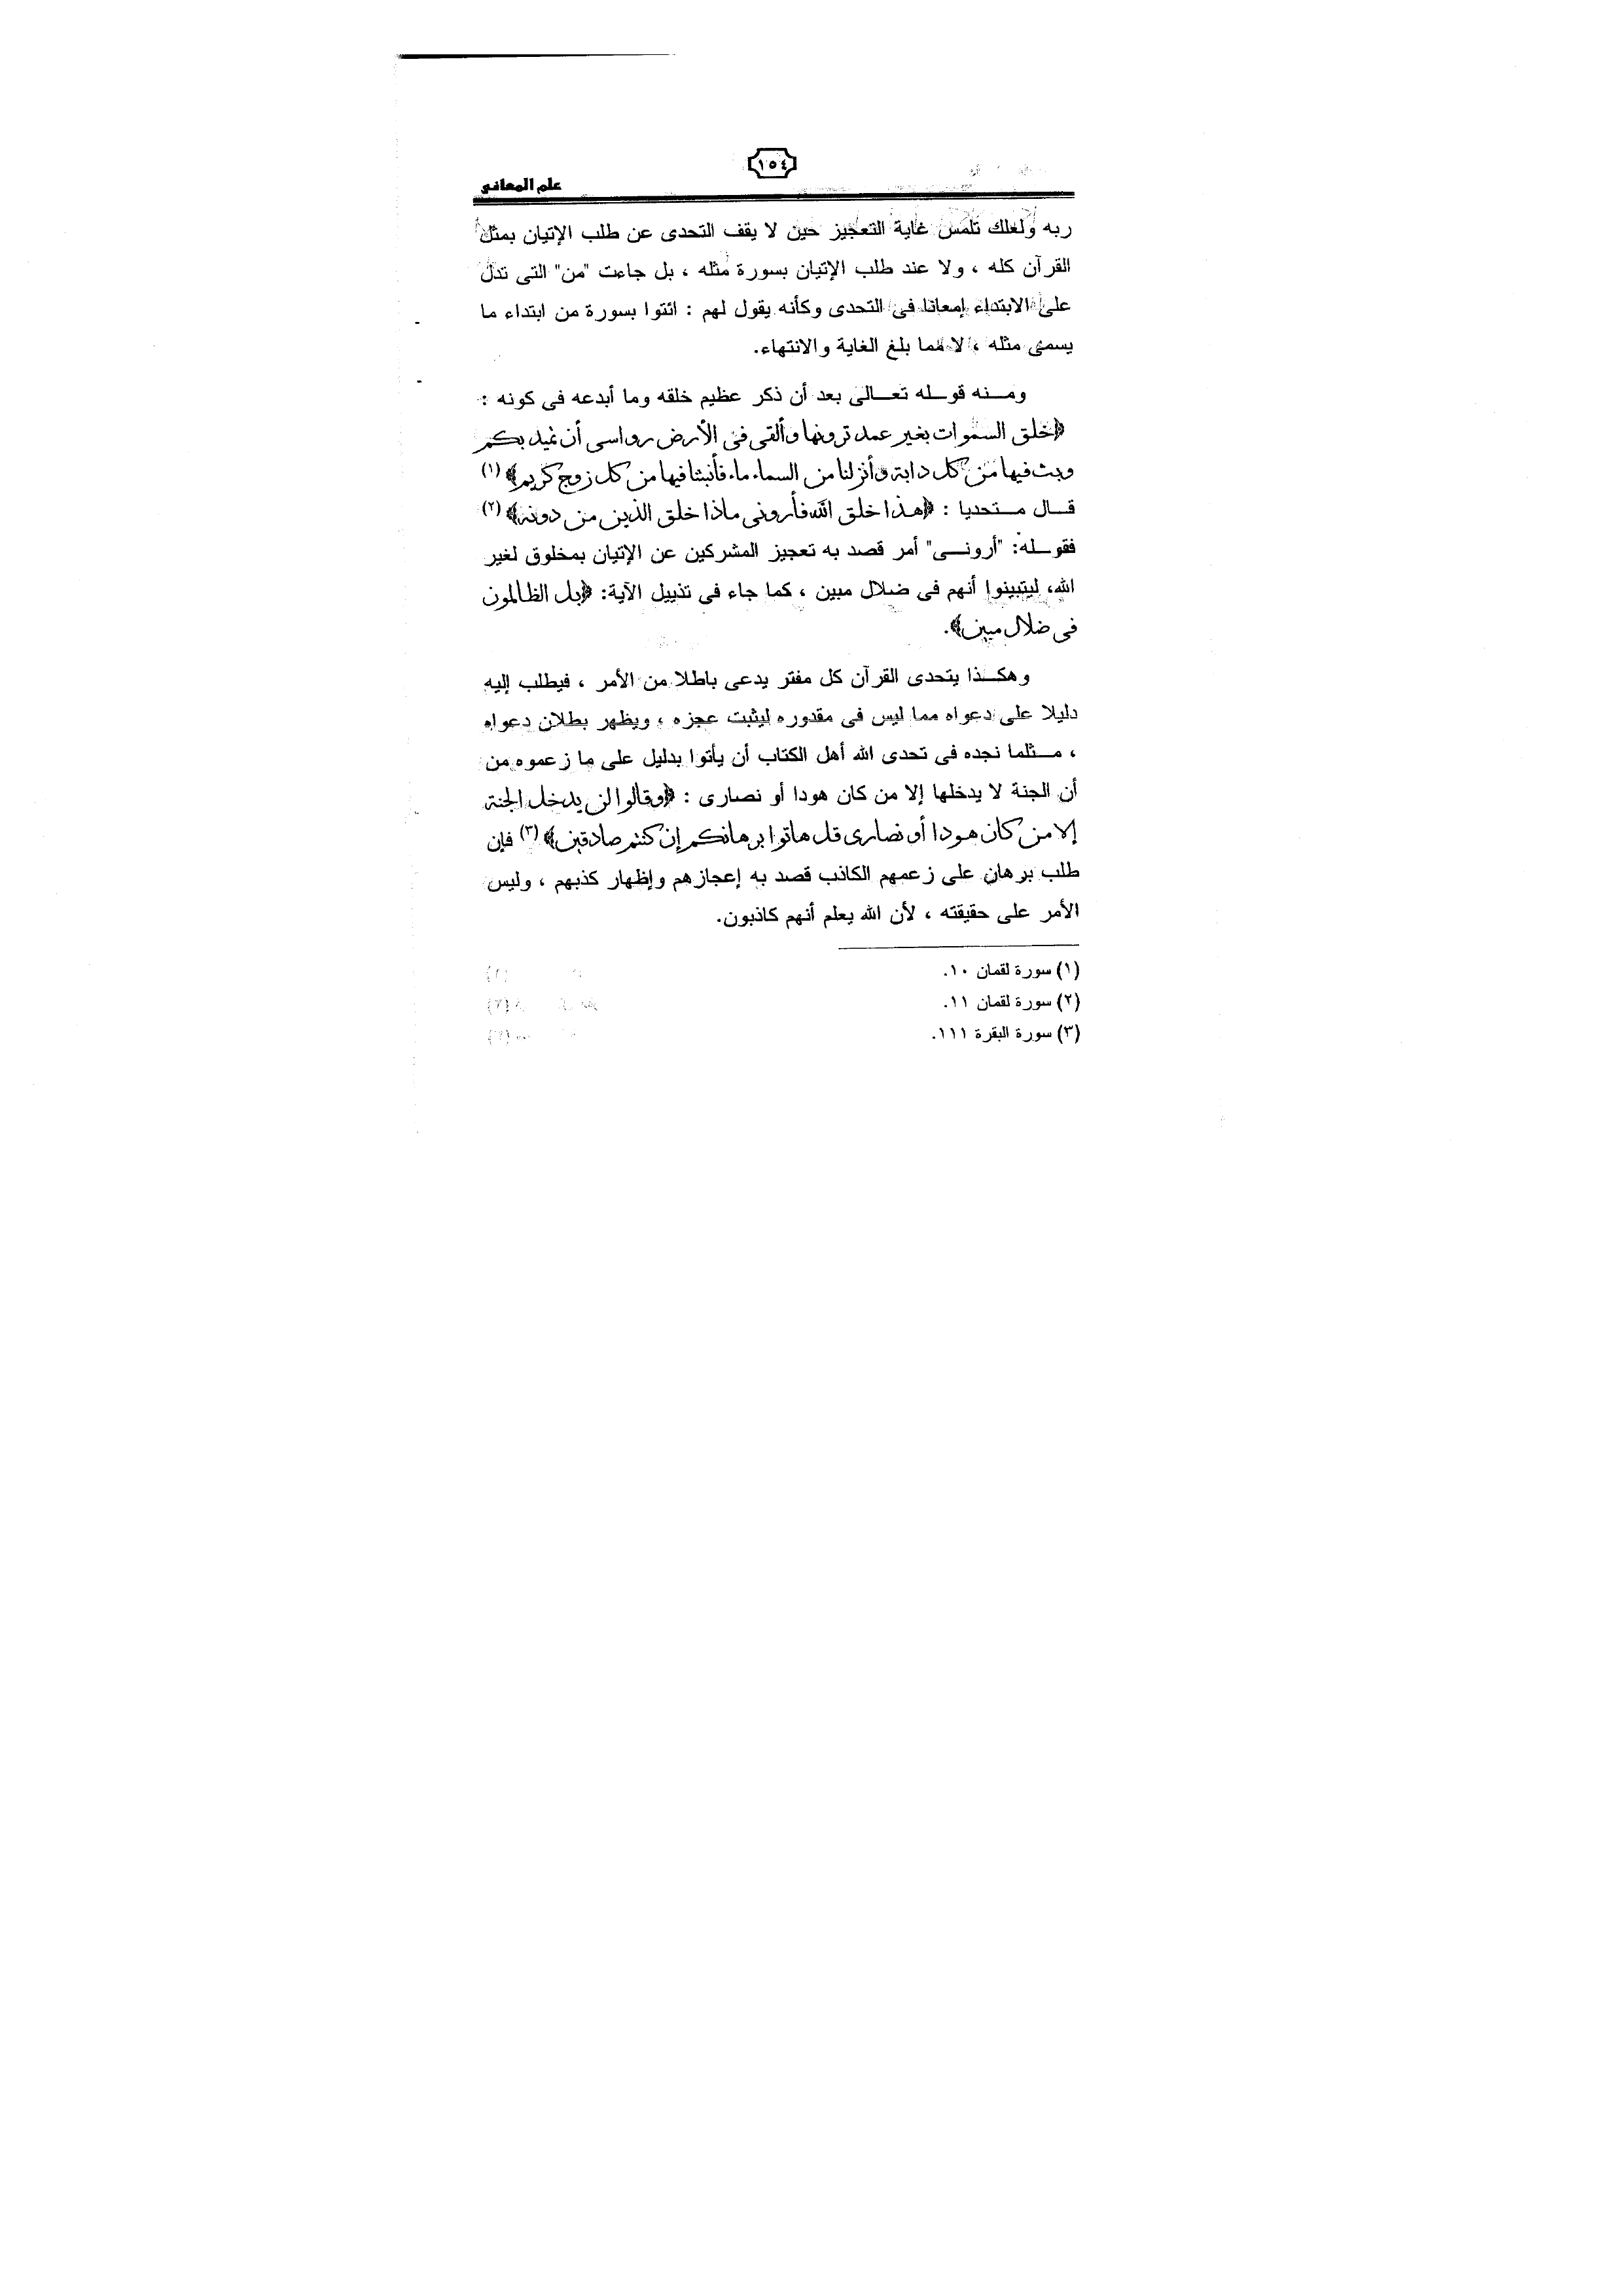 ١٥٤
علم المعانى
ربه ولعلك تلمس غاية التعجيز حين لا يقف التحدى عن طلب الإتيان بمثل
القرآن كله ، ولا عند طلب الإتيان بسورة مثله ، بل جاءت "من" التى تدل
على الابتداء إمعانا فى التحدى وكأنه يقول لهم : ائتوا بسورة من ابتداء ما
يسمى مثله ، لا مما بلغ الغاية والانتهاء.
ومنه قوله تعالى بعد أن ذكر عظيم خلقه وما أبدعه فى كونه :
﴿خلق السموات بغير عمد ترونها وألقى فى الأرض رواسى أن تميد بكم
وبث فيها من كل دابة وأنزلنا من السماء ماء فأنبتنا فيها من كل زوج كريم﴾ (١)
قال متحديا : ﴿هذا خلق الله فأرونى ماذا خلق الذين من دونه﴾ (٢)
فقوله: "أرونى" أمر قصد به تعجيز المشركين عن الإتيان بمخلوق لغير
الله، ليتبينوا أنهم فى ضلال مبين ، كما جاء فى تذييل الآية: ﴿بل الظالمون
فى ضلال مبين﴾.
وهكذا يتحدى القرآن كل مفتر يدعى باطلا من الأمر ، فيطلب إليه
دليلا على دعواه مما ليس فى مقدوره ليثبت عجزه ، ويظهر بطلان دعواه
، مثلما نجده فى تحدى الله أهل الكتاب أن يأتوا بدليل على ما زعموه من
أن الجنة لا يدخلها إلا من كان هودا أو نصارى : ﴿وقالوا لن يدخل الجنة
إلا من كان هودا أو نصارى قل هاتوا برهانكم إن كنتم صادقين﴾ (٣) فإن
طلب برهان على زعمهم الكاذب قصد به إعجازهم وإظهار كذبهم ، وليس
الأمر على حقيقته ، لأن الله يعلم أنهم كاذبون.
(١) سورة لقمان ١٠.
(٢) سورة لقمان ١١.
(٣) سورة البقرة ١١١.